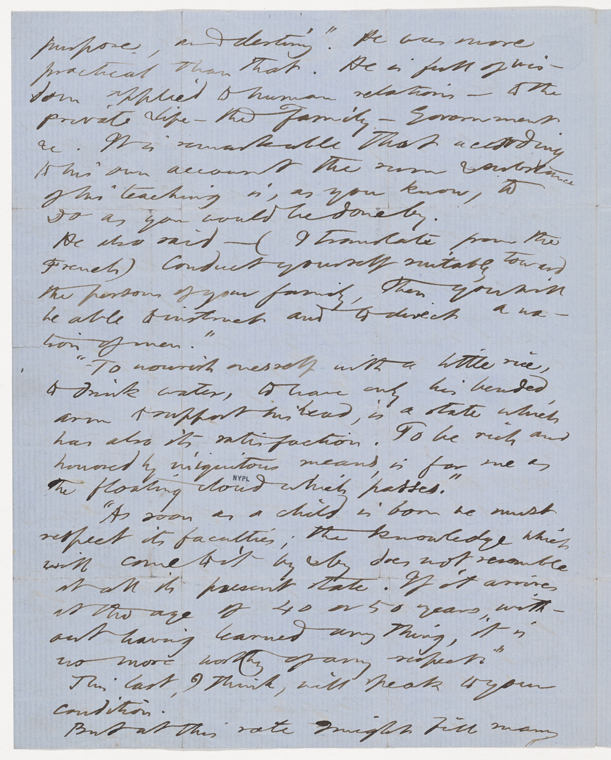 purpose, and destiny". He was more
practical than that. He is full of wis-
dom applied to human relations — to the
private life — the Family — Government
&c. It is remarkable that according
to his own account the sum & substance
of his teaching is, as you know, to
Do as you would be done by.
He also said — ( I translate from the
French) Conduct yourself suitably toward
the persons of your family, then you will
be able to instruct and to direct a na-
tion of men."
"To nourish oneself with a little rice,
to drink water, to have only his bended
arm to support his head, is a state which
has also its satisfaction. To be rich and
honored by iniquitous means, is for me as
the floating cloud which passes."
NYPL
"As soon as a child is born we must
respect its faculties; the knowledge which
will come to it by & by does not resemble
at all its present state. If it arrives
at the age of 40 or 50 years, with-
out having learned any thing, it is
no more worthy of any respect."
This last, I think, will speak to your
condition.
But at this rate I might fill many